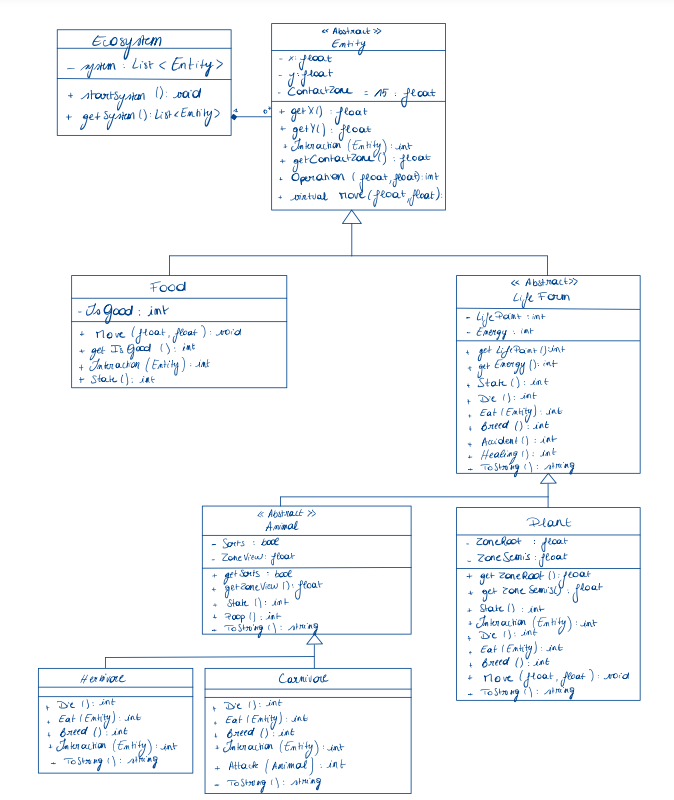 Ecosystem
- system : List < Entity >
+ startSystem () : void
+ getSystem () : List<Entity>
<< Abstract >>
Entity
- x : float
- y : float
- ContactZone = 15 : float
+ getX() : float
+ getY() : float
+ Interaction (Entity) : int
+ getContactZone () : float
+ Operation (float, float) : int
+ virtual Move (float, float) :
0*
Food
- IsGood : int
+ Move (float, float) : void
+ get IsGood () : int
+ Interaction (Entity) : int
+ State () : int
<< Abstract >>
Life Form
- LifePoint : int
- Energy : int
+ get LifePoint () : int
+ get Energy () : int
+ State () : int
+ Die () : int
+ Eat (Entity) : int
+ Breed () : int
+ Accident () : int
+ Healing () : int
+ ToString () : string
<< Abstract >>
Animal
- Sorts : bool
- ZoneView : float
+ getSorts : bool
+ getZoneView () : float
+ State () : int
+ Poop () : int
- ToString () : string
Plant
- ZoneRoot : float
- ZoneSemis : float
+ get ZoneRoot () : float
+ get ZoneSemis() : float
+ State () : int
+ Interaction (Entity) : int
+ Die () : int
+ Eat (Entity) : int
+ Breed () : int
+ Move (float, float) : void
- ToString () : string
Herbivore
+ Die () : int
+ Eat (Entity) : int
+ Breed () : int
+ Interaction (Entity) : int
+ ToString () : string
Carnivore
+ Die () : int
+ Eat (Entity) : int
+ Breed () : int
+ Interaction (Entity) : int
+ Attack (Animal) : int
- ToString () : string